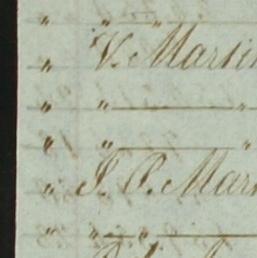 " " "
" V. Marti
" " "
" " "
" J. P. Mar
" " "